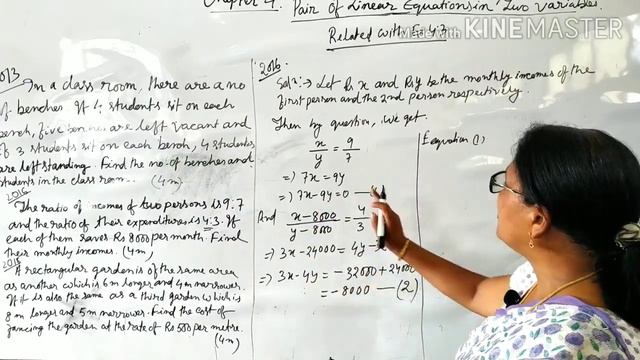 Chapter 4. Pair of Linear Equations in Two Variables.
Related with Ex 4.3
Made with KINEMASTER
2013
In a class room, there are a no
of benches. If 4 students sit on each
bench, five benches are left vacant and
if 3 students sit on each bench, 4 students
are left standing. Find the no. of benches and
students in the class room. (4m)
2016
The ratio of incomes of two persons is 9:7
and the ratio of their expenditures is 4:3. If
each of them saves Rs 8000 per month. Find
their monthly incomes. (4m)
2015
A rectangular garden is of the same area
as another which is 6m longer and 4m narrower.
It is also the same as a third garden which is
8m longer and 5m narrower. Find the cost of
fancing the garden at the rate of Rs 500 per metre.
(4m)
2016
Soln :→ Let Rs x and Rs y be the monthly incomes of the
first person and the 2nd person respectively.
Then by question, we get.
x/y = 9/7
=> 7x = 9y
=> 7x - 9y = 0
And x-8000/y-8000 = 4/3
=> 3x - 24000 = 4y -
=> 3x - 4y = -32000 + 24000
= -8000 — (2)
Equation (1)